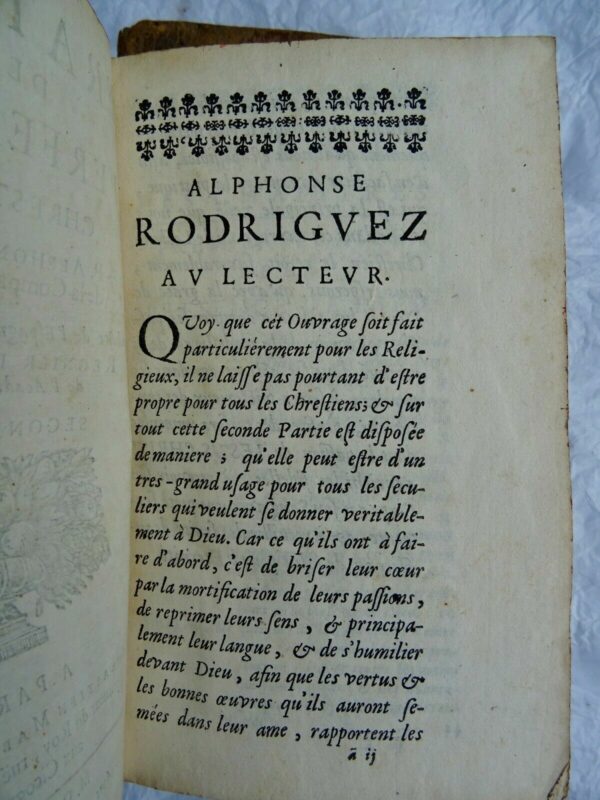 ALPHONSE
RODRIGVEZ
AV LECTEVR.
QVoy que cét Ouvrage ſoit fait
particuliérement pour les Reli-
gieux, il ne laiſſe pas pourtant d'eſtre
propre pour tous les Chreſtiens; & ſur
tout cette ſeconde Partie eſt diſpoſée
de maniere ; qu'elle peut eſtre d'un
tres-grand uſage pour tous les ſecu-
liers qui veulent ſe donner veritable-
ment à Dieu. Car ce qu'ils ont à fai-
re d'abord, c'eſt de briſer leur cœur
par la mortification de leurs paſſions,
de reprimer leurs ſens , & principa-
lement leur langue, & de s'humilier
devant Dieu, afin que les vertus &
les bonnes œuvres qu'ils auront ſe-
mées dans leur ame , rapportent les
ā ij
CHRES
ALPHON
la Comp
SECON
A PAR
MAB